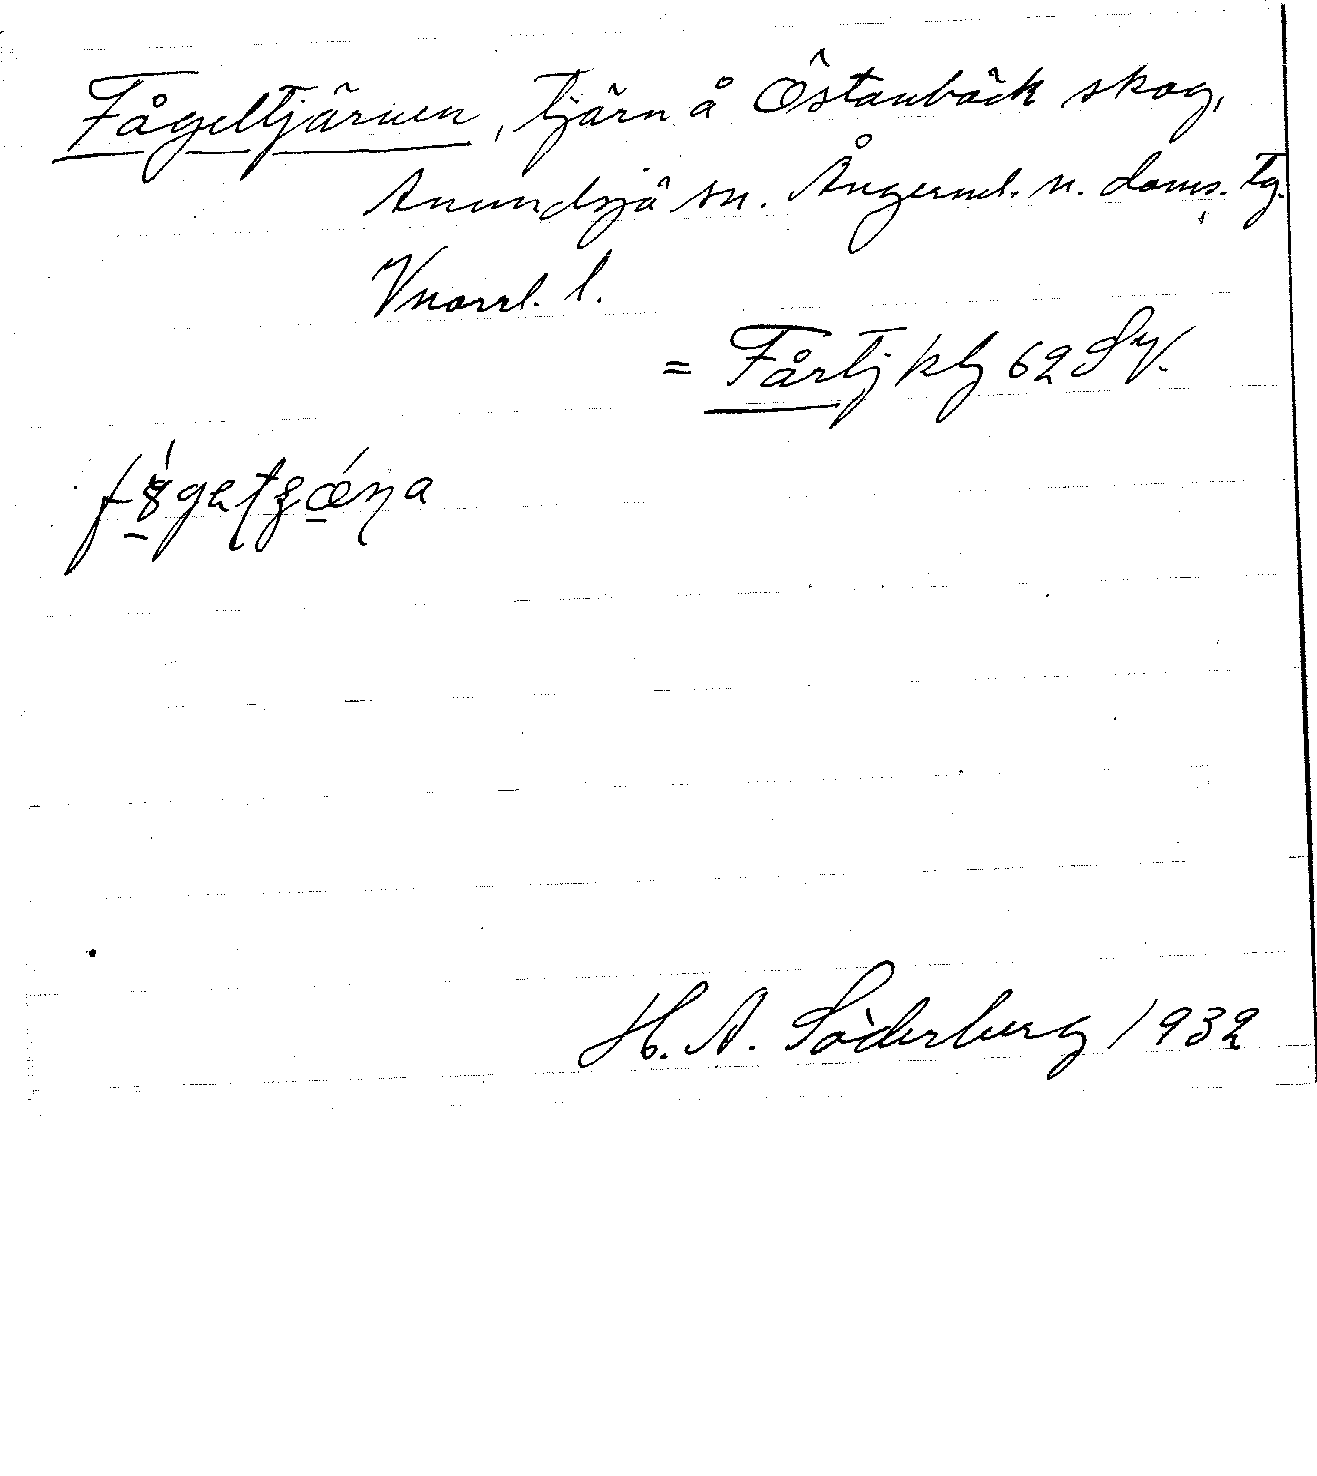 Fågeltjärnen, tjärn å Östanbäck skog,
Anundsjö sn. Ångerml. n. doms. tg.
Vnorrl. l.
= Fårtj kbl 62 SV.
H. A. Söderberg 1932